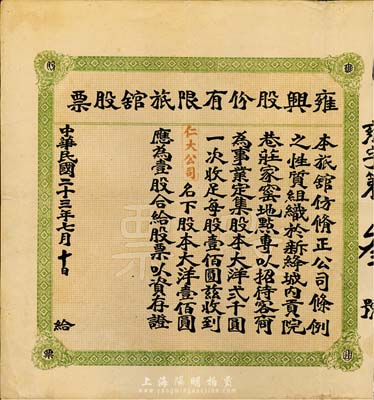 雍興股份有限旅舘股票
本旅舘仿脩正公司條例
之性質組織於新絳城內貢院
巷莊家窰地點專以招待客商
為事業定集股本大洋弍千圓
一次收足每股壹佰圓茲收到
仁大公司名下股本大洋壹佰圓
應為壹股合給股票以資存證
中華民國二十三年七月十日 給
股
票
上海陽明拍賣
www.yangmingauction.com